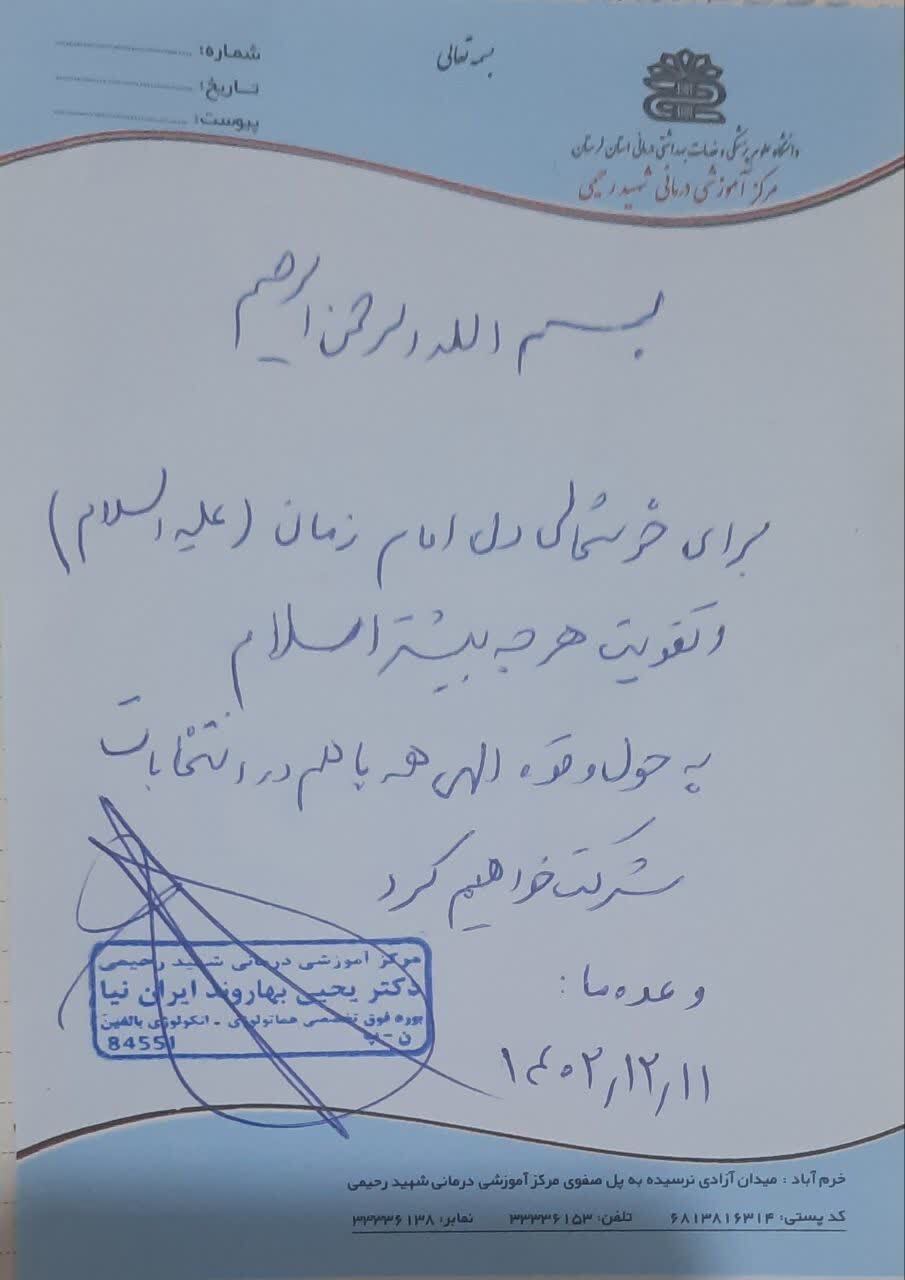 بسمه تعالی
شماره:
تاریخ:
پیوست:
دانشگاه علوم پزشکی و خدمات بهداشتی درمانی استان لرستان
مرکز آموزشی درمانی شهید رحیمی
بسم الله الرحمن الرحیم
برای خوشحالی دل امام زمان (علیه السلام)
و تقویت هر چه بیشتر اسلام
به حول و قوه الهی همه با هم در انتخابات
شرکت خواهیم کرد
وعده ما:
۱۴۰۲/۱۲/۱۱
مرکز آموزشی درمانی شهید رحیمی
دکتر یحیی بهاروند ایران نیا
فوق تخصصی هماتولوژی - انکولوژی بالغین
ن - پ
84551
خرم آباد : میدان آزادی نرسیده به پل صفوی مرکز آموزشی درمانی شهید رحیمی
کد پستی: ۶۸۱۳۸۱۶۳۱۴ تلفن: ۳۳۳۳۶۱۵۳ نمابر: ۳۳۳۳۶۱۳۸